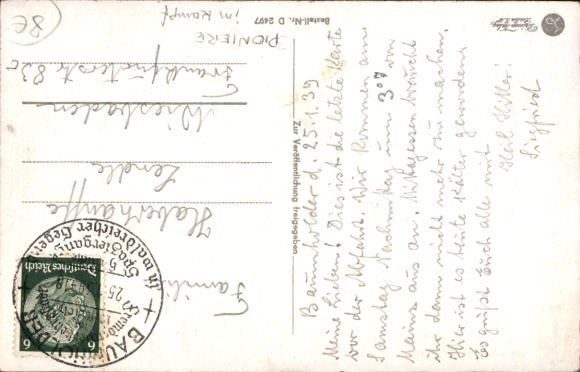 Baumholder d. 25.1.39
Meine Lieben! Dies ist die letzte Karte
vor der Abfahrt. Wir kommen am
Samstag Nachmittag um 3 07 von
Mainz aus an. Mittagessen braucht
ihr dann nicht mehr zu machen.
Hier ist es heute kälter geworden.
Es grüßt Euch alle mit
Heil Hitler!
Siegfried
Familie
Haberhauffe
Wiesbaden
Frankfurterstr. 83
PIONIERE
im Kampf
Bestell-Nr. D 2497
Zur Veröffentlichung freigegeben
Deutsches Reich
6 6
BAUMHOLDER
25
in waldreicher Gegend
Spaziergang
8€